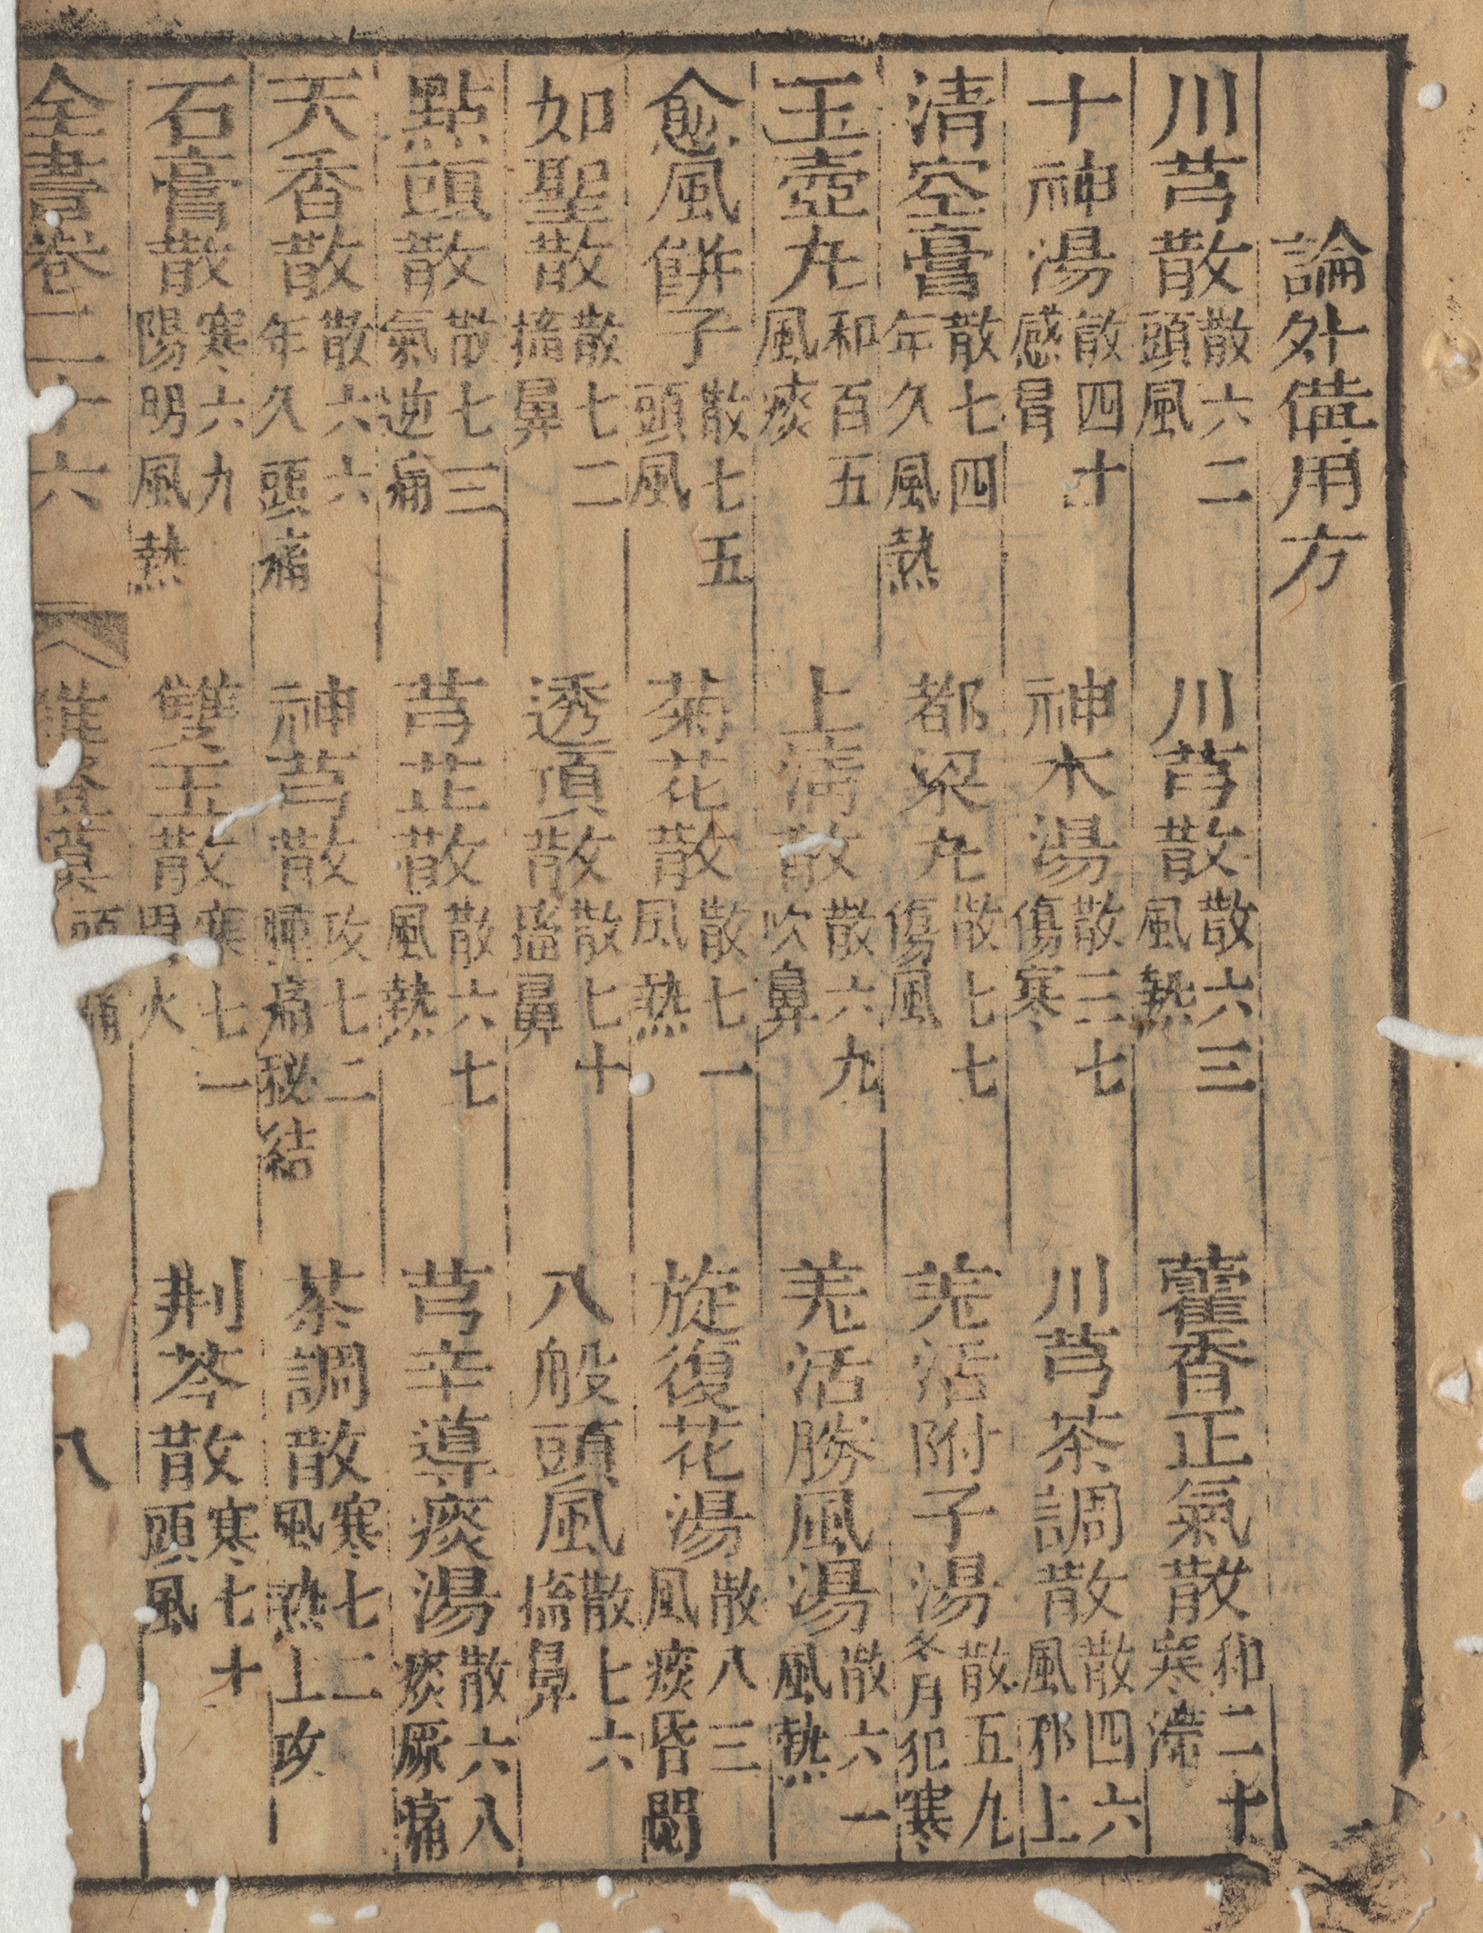 論外備用方
川芎散散六二頭風　川芎散散六三風熱　藿香正氣散和二十寒滯
十神湯散四十感冒　神木湯散三七傷寒　川芎茶調散散四六風邪上
清空膏散七四年久風熱　都梁丸散七七傷風　羌活附子湯散五九冬月犯寒
玉壺丸和百五風痰　上清散散六九吹鼻　羌活勝風湯散六一風熱
愈風餅子散七五頭風　菊花散散七一風熱　旋復花湯散八三風痰昏悶
如聖散散七二搐鼻　透頂散散七十搐鼻　八般頭風散七六搐鼻
點頭散散七三氣逆痛　芎芷散散六七風熱　芎辛導痰湯散六八痰厥痛
天香散散六六年久頭痛　神芎散攻七二腫痛秘結　茶調散寒七二風熱上攻
石膏散寒六九陽明風熱　雙玉散寒七一胃火　荆芩散寒七十頭風
全書卷二十六　頭痛　八